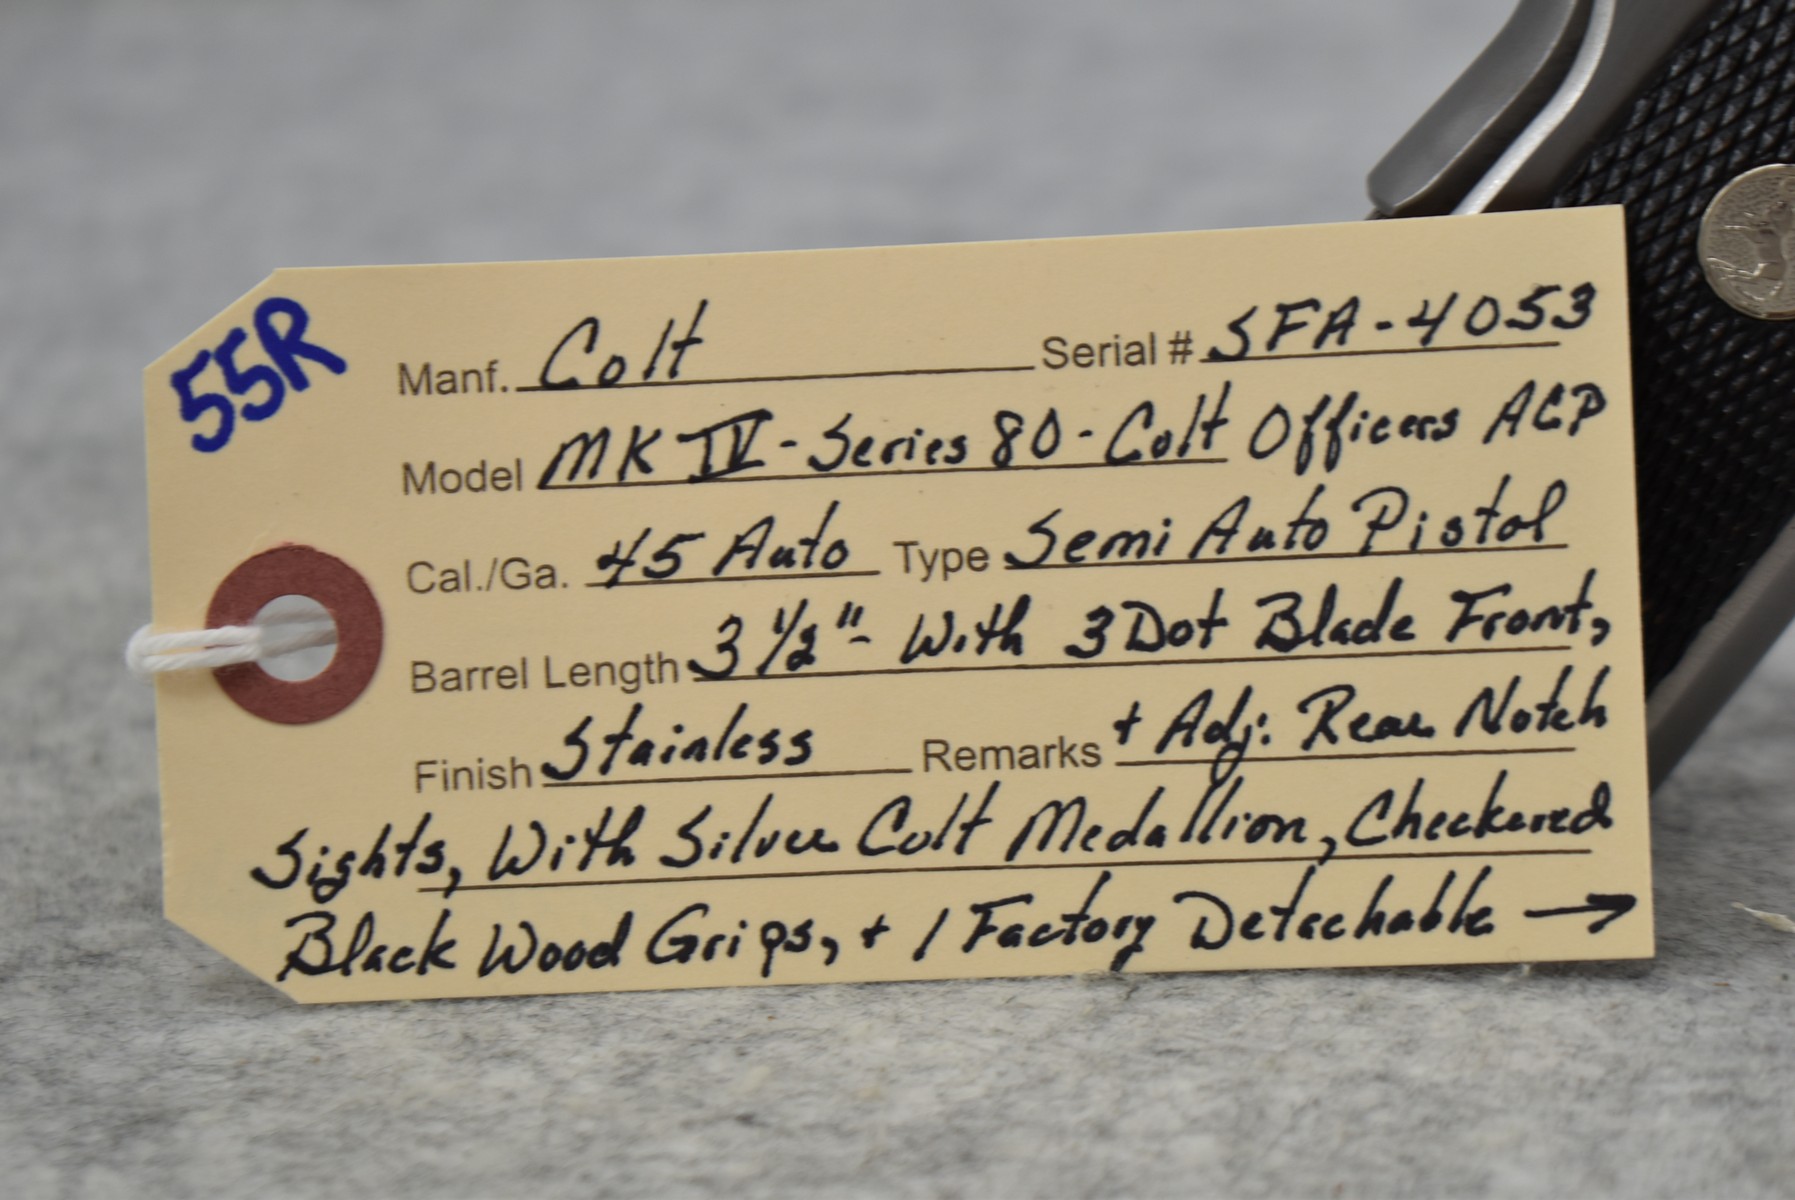 55R
Manf. Colt Serial # SFA-4053
Model MK IV-Series 80-Colt Officers ACP
Cal./Ga. 45 Auto Type Semi Auto Pistol
Barrel Length 3 1/2"- With 3 Dot Blade Front,
Finish Stainless Remarks + Adj. Rear Notch
Sights, With Silver Colt Medallion, Checkered
Black Wood Grips, + 1 Factory Detachable →